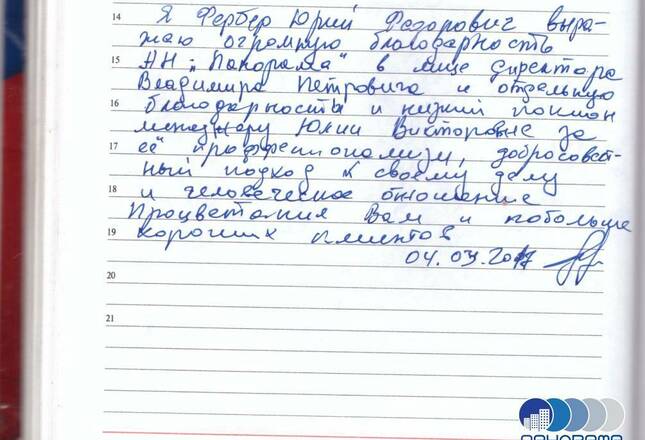 14
Я Фербер Юрий Федорович выра-
жаю огромную благодарность
15
АН "Панорама" в лице директора
Владимира Петровича и отдельную
16
благодарность и низкий поклон
менеджеру Юлии Викторовне за
17
её профессионализм, добросовест-
ный подход к своему делу
18
и человеческое отношение
Процветания Вам и побольше
19
хороших клиентов
04.03.2017
20
21
ПАНОРАМА